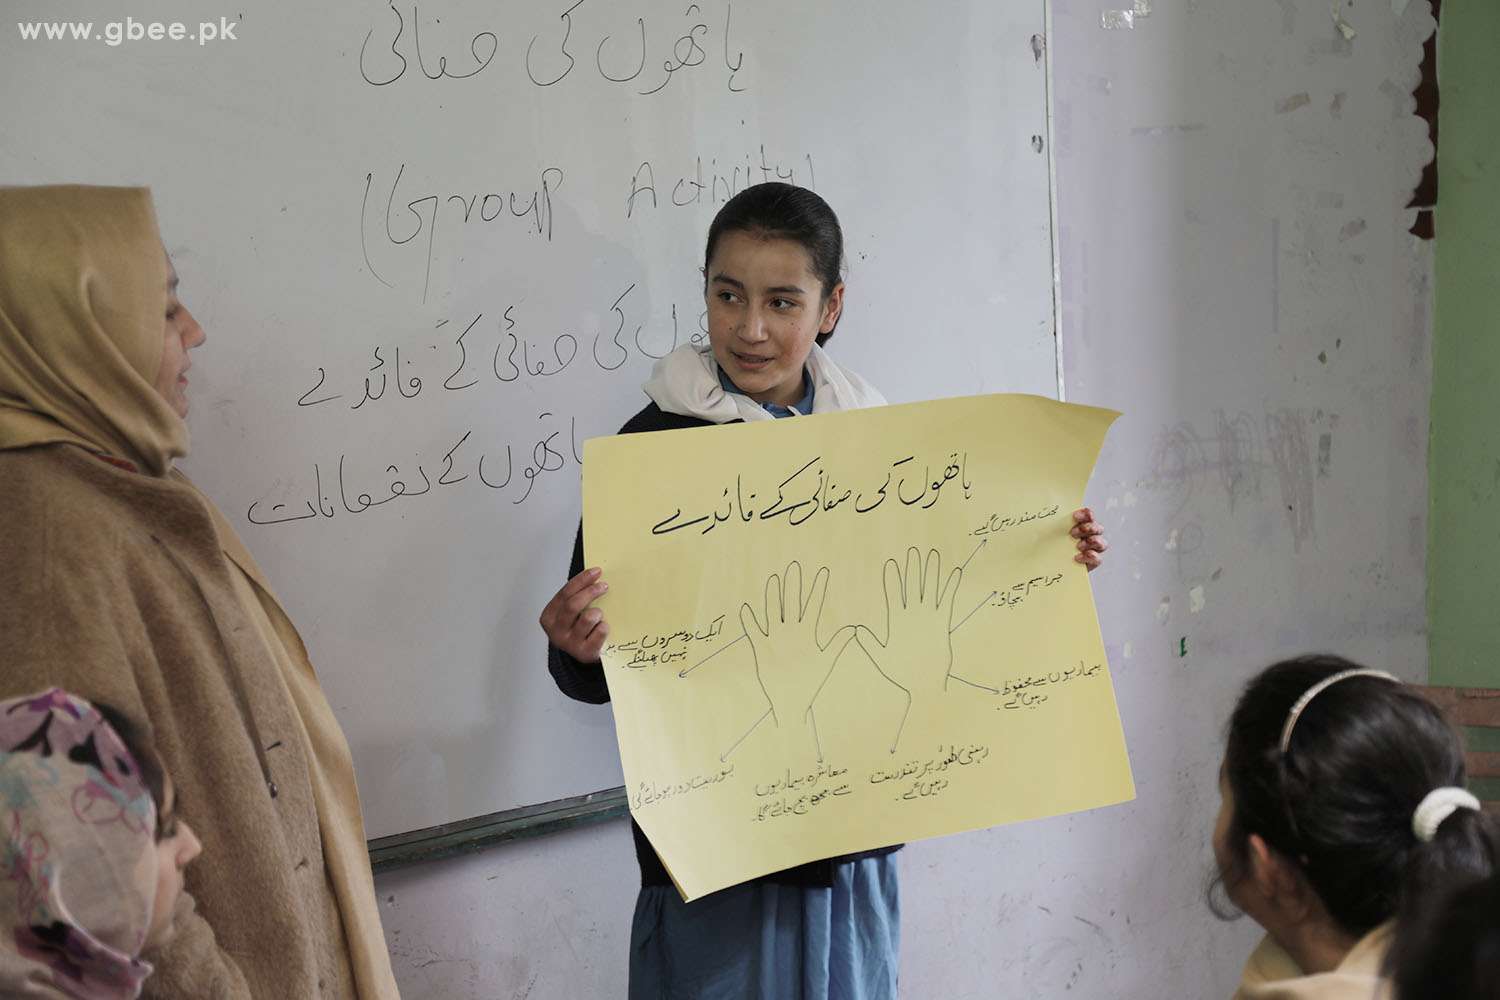 www.gbee.pk
ہاتھوں کی صفائی
(Group Activity)
ہاتھوں کی صفائی کے فائدے
ہاتھوں کے نقصانات
ہاتھوں کی صفائی کے فائدے
صحت مند رہیں گے۔
جراثیم سے
بچاؤ۔
ایک دوسروں سے
نہیں پھیلنگے۔
بیماریوں سے محفوظ
رہیں گے۔
بوریت دور ہو جائے گی
معاشرہ بیماریوں
سے بچ جائے گا۔
ذہنی طور پر تندرست
رہیں گے۔